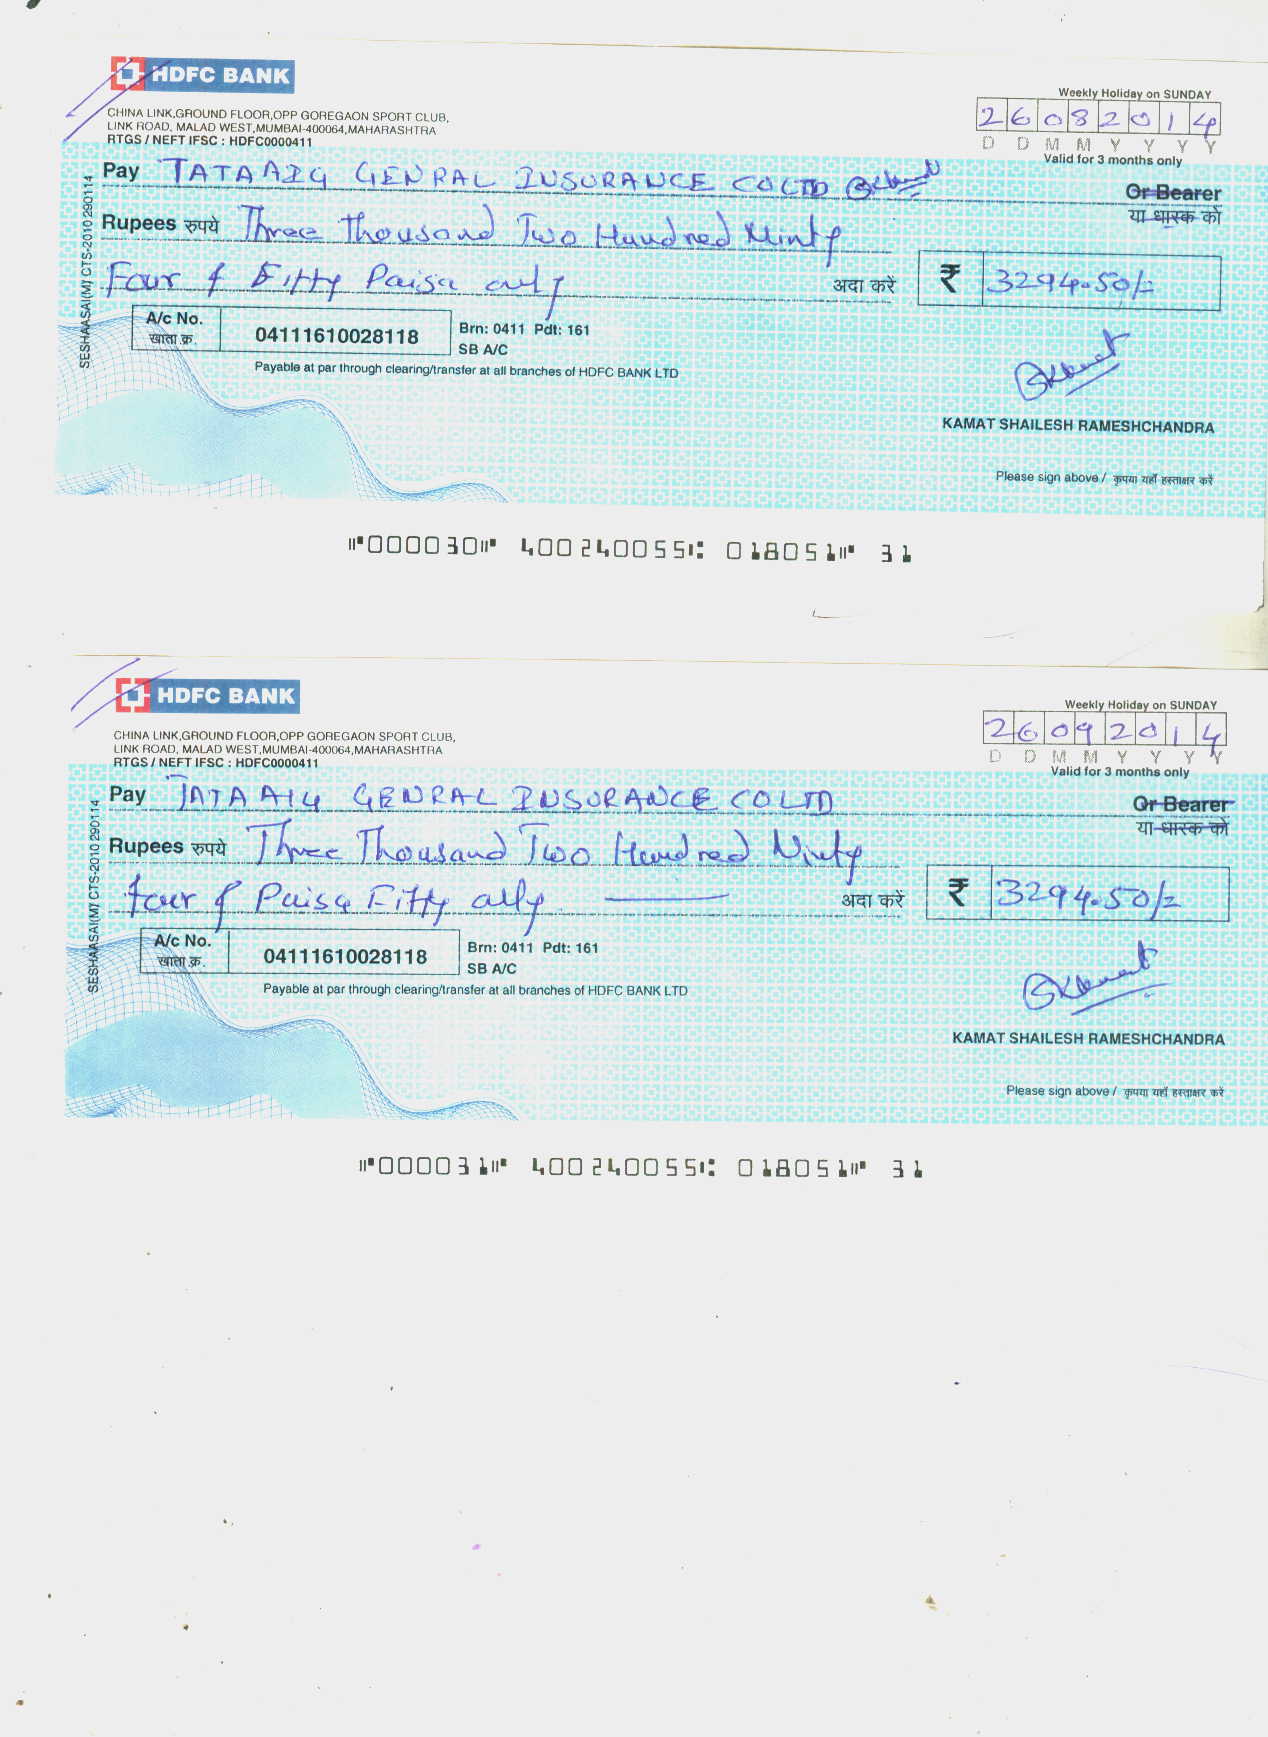 HDFC BANK
CHINA LINK,GROUND FLOOR,OPP GOREGAON SPORT CLUB,
LINK ROAD, MALAD WEST,MUMBAI-400064,MAHARASHTRA
RTGS / NEFT IFSC : HDFC0000411
Weekly Holiday on SUNDAY
26082014
D D M M Y Y Y Y
Valid for 3 months only
Pay TATA AIG GENRAL INSURANCE CO LTD
Or Bearer
या धारक को
Rupees रुपये Three Thousand Two Hundred Ninty
Four & Fifty Paisa only अदा करें ₹ 3294.50/=
A/c No.
खाता क्र. 04111610028118
Brn: 0411 Pdt: 161
SB A/C
Payable at par through clearing/transfer at all branches of HDFC BANK LTD
SESHAASAI(M) CTS-2010 290114
KAMAT SHAILESH RAMESHCHANDRA
Please sign above / कृपया यहाँ हस्ताक्षर करें
⑈000030⑈ 400240055⑆ 018051⑈ 31
HDFC BANK
CHINA LINK,GROUND FLOOR,OPP GOREGAON SPORT CLUB,
LINK ROAD, MALAD WEST,MUMBAI-400064,MAHARASHTRA
RTGS / NEFT IFSC : HDFC0000411
Weekly Holiday on SUNDAY
26092014
D D M M Y Y Y Y
Valid for 3 months only
Pay TATA AIG GENRAL INSURANCE CO LTD
Or Bearer
या धारक को
Rupees रुपये Three Thousand Two Hundred Ninty
four & Paisa Fifty only अदा करें ₹ 3294.50/=
A/c No.
खाता क्र. 04111610028118
Brn: 0411 Pdt: 161
SB A/C
Payable at par through clearing/transfer at all branches of HDFC BANK LTD
SESHAASAI(M) CTS-2010 290114
KAMAT SHAILESH RAMESHCHANDRA
Please sign above / कृपया यहाँ हस्ताक्षर करें
⑈000031⑈ 400240055⑆ 018051⑈ 31